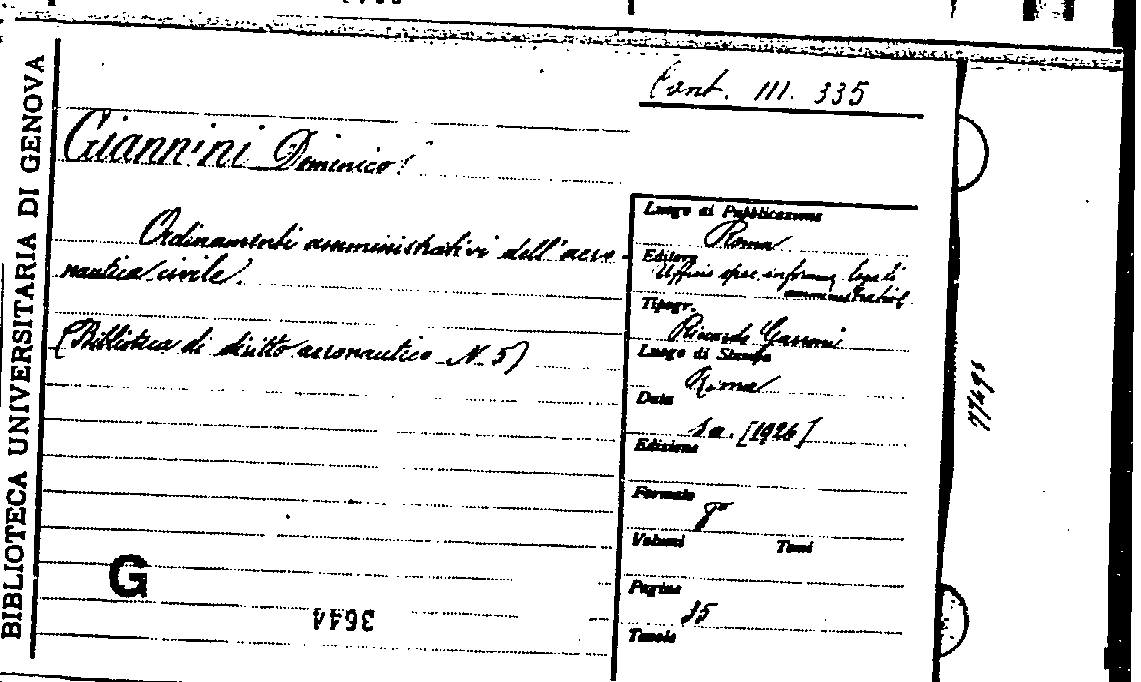 BIBLIOTECA UNIVERSITARIA DI GENOVA
Cont. III. 335
Giannini Domenico
Ordinamenti amministrativi dell'aero-
nautica civile.
(Biblioteca di diritto aeronautico N. 5)
Luogo di Pubblicazione
Roma
Editore
Ufficio spec. inform. legali
amministrativi
Tipogr.
Riccardo Garroni
Luogo di Stampa
Roma
Data
s.a. [1926]
Edizione
Formato
8°
Volumi Tomi
Pagine
35
Tavole
G
3644